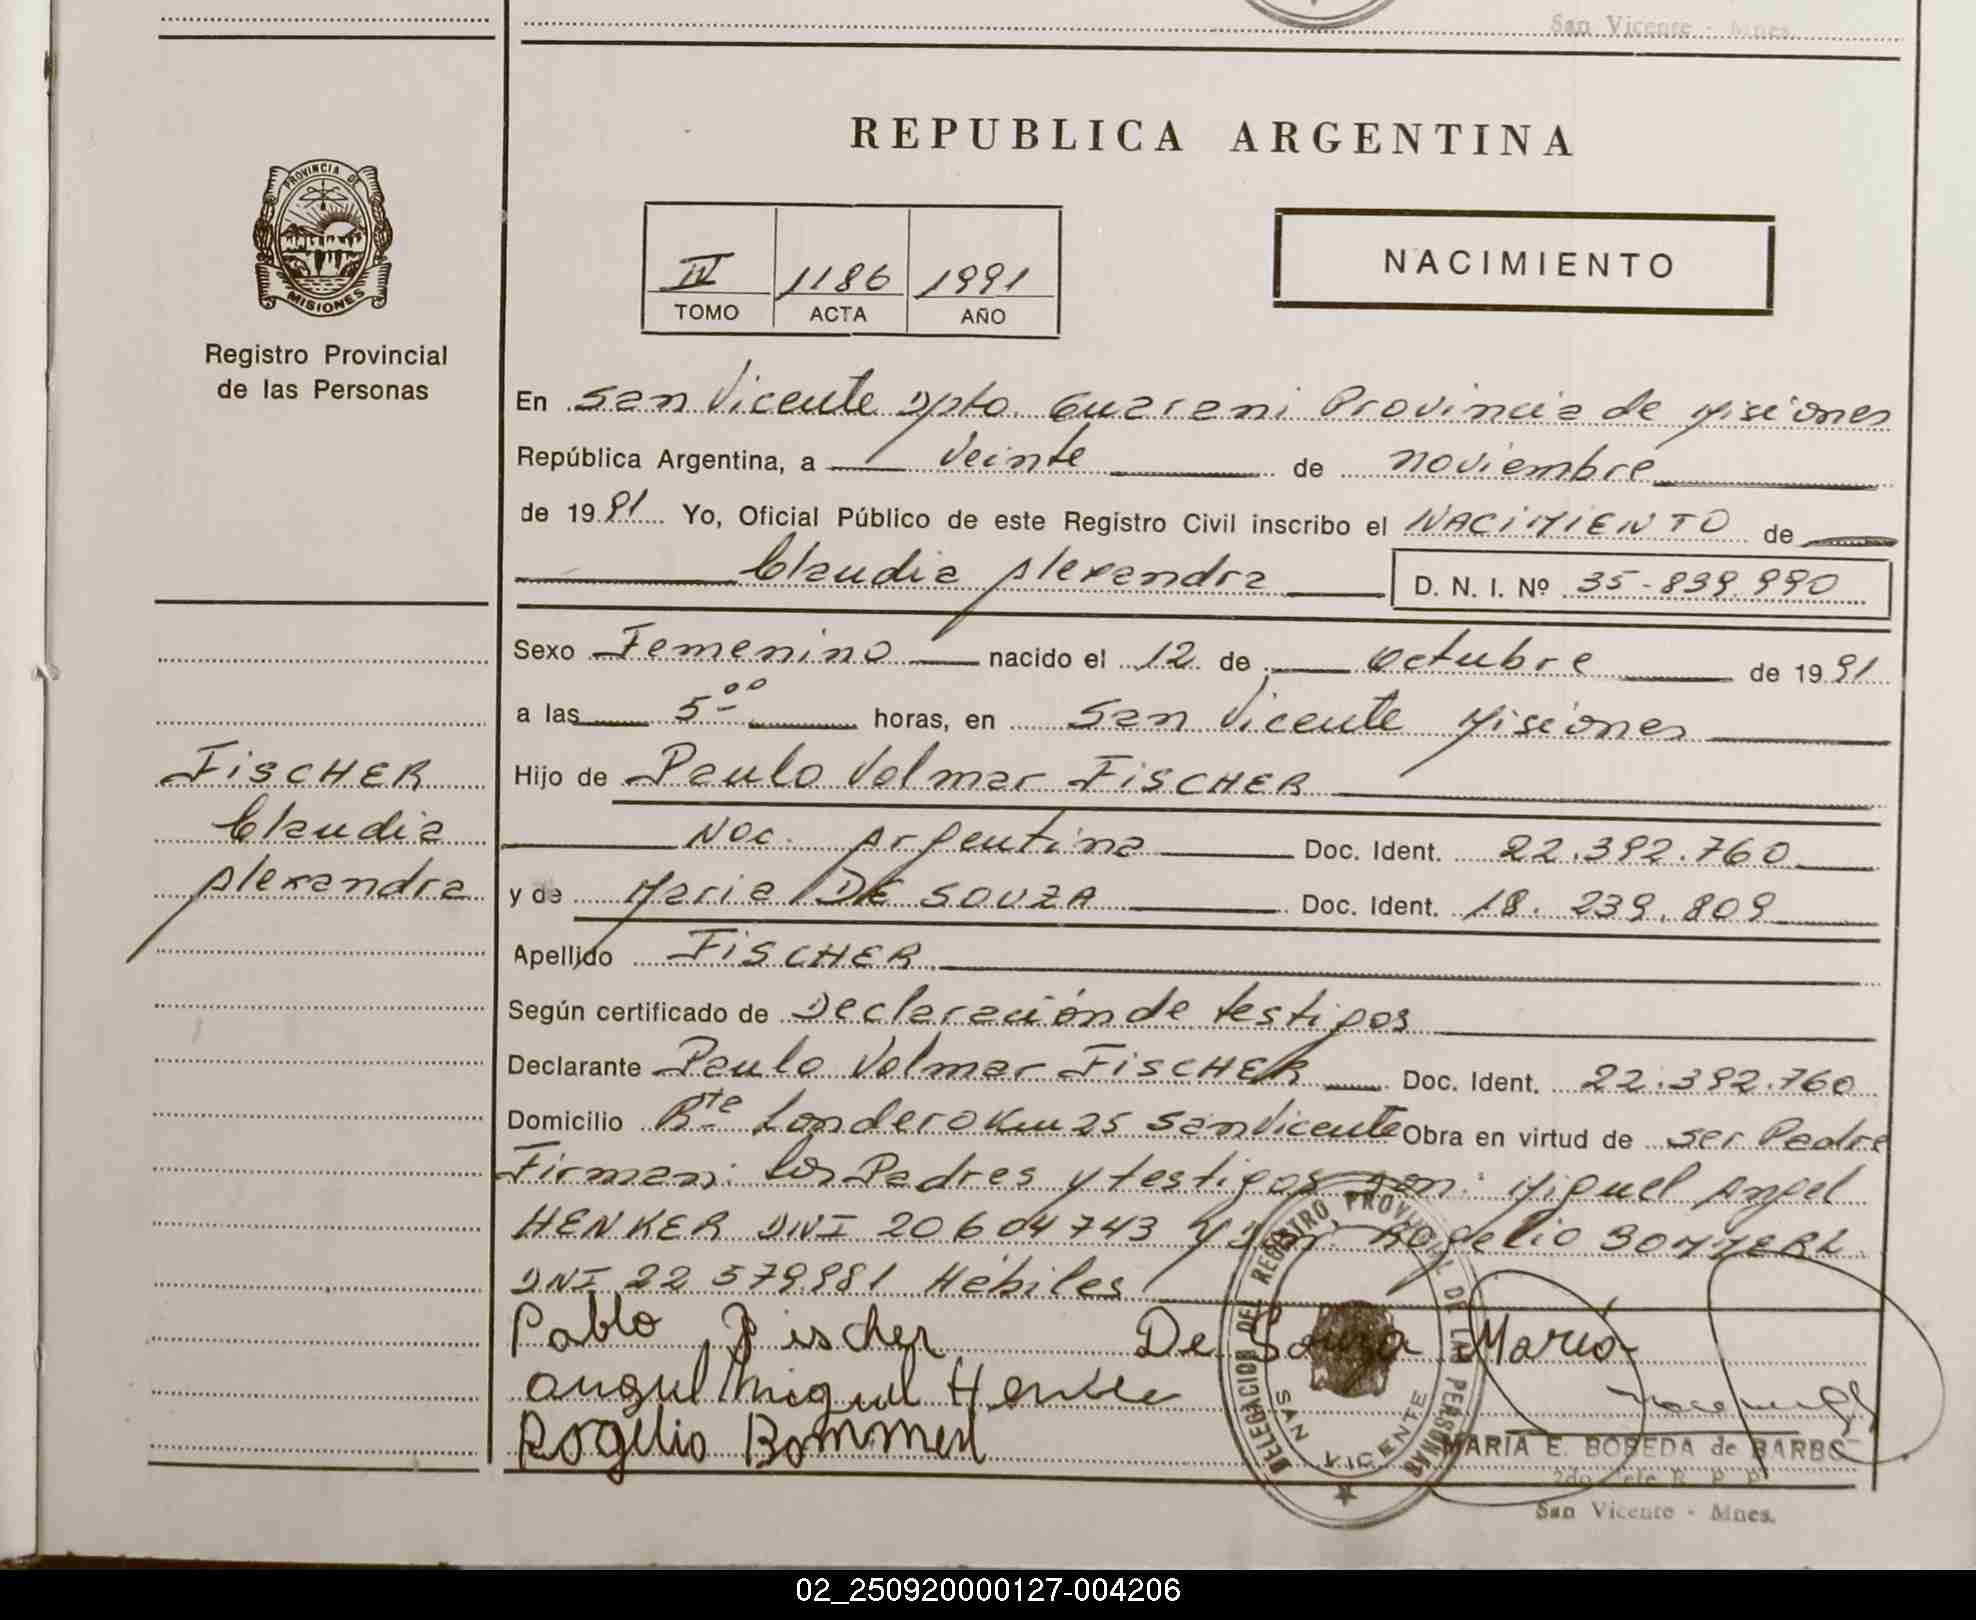 San Vicente - Mnes.
REPUBLICA ARGENTINA
PROVINCIA DE
MISIONES
Registro Provincial
de las Personas
IV 1186 1991
TOMO ACTA AÑO
NACIMIENTO
En San Vicente Dpto. Guarani Provincia de Misiones
República Argentina, a Veinte de noviembre
de 1991 Yo, Oficial Público de este Registro Civil inscribo el NACIMIENTO de
Claudia Alexandra D. N. I. Nº 35-839.990
Sexo Femenino nacido el 12 de octubre de 1991
a las 5⁰⁰ horas, en San Vicente Misiones
FISCHER
Claudia
Alexandra
Hijo de Paulo Valmar FISCHER
Nac. Argentina Doc. Ident. 22.392.760
y de Maria DE SOUZA Doc. Ident. 18.239.809
Apellido FISCHER
Según certificado de Declaración de testigos
Declarante Paulo Valmar FISCHER Doc. Ident. 22.392.760
Domicilio Rte Londero Km 25 San Vicente Obra en virtud de ser Padre
Firman: los Padres y testigos son: Miguel Angel
HENKER DNI 20604743 y Rogelio BOMMERL
DNI 22.579.981 Hábiles
Pablo Fischer De Souza Maria
Angel Miguel Henke
Rogelio Bommerl
DELEGACION DEL REGISTRO PROVINCIAL DE LAS PERSONAS
SAN VICENTE
MARIA E. BOBEDA de BARBO
2do Jefe R. P. P.
San Vicente - Mnes.
02_250920000127-004206